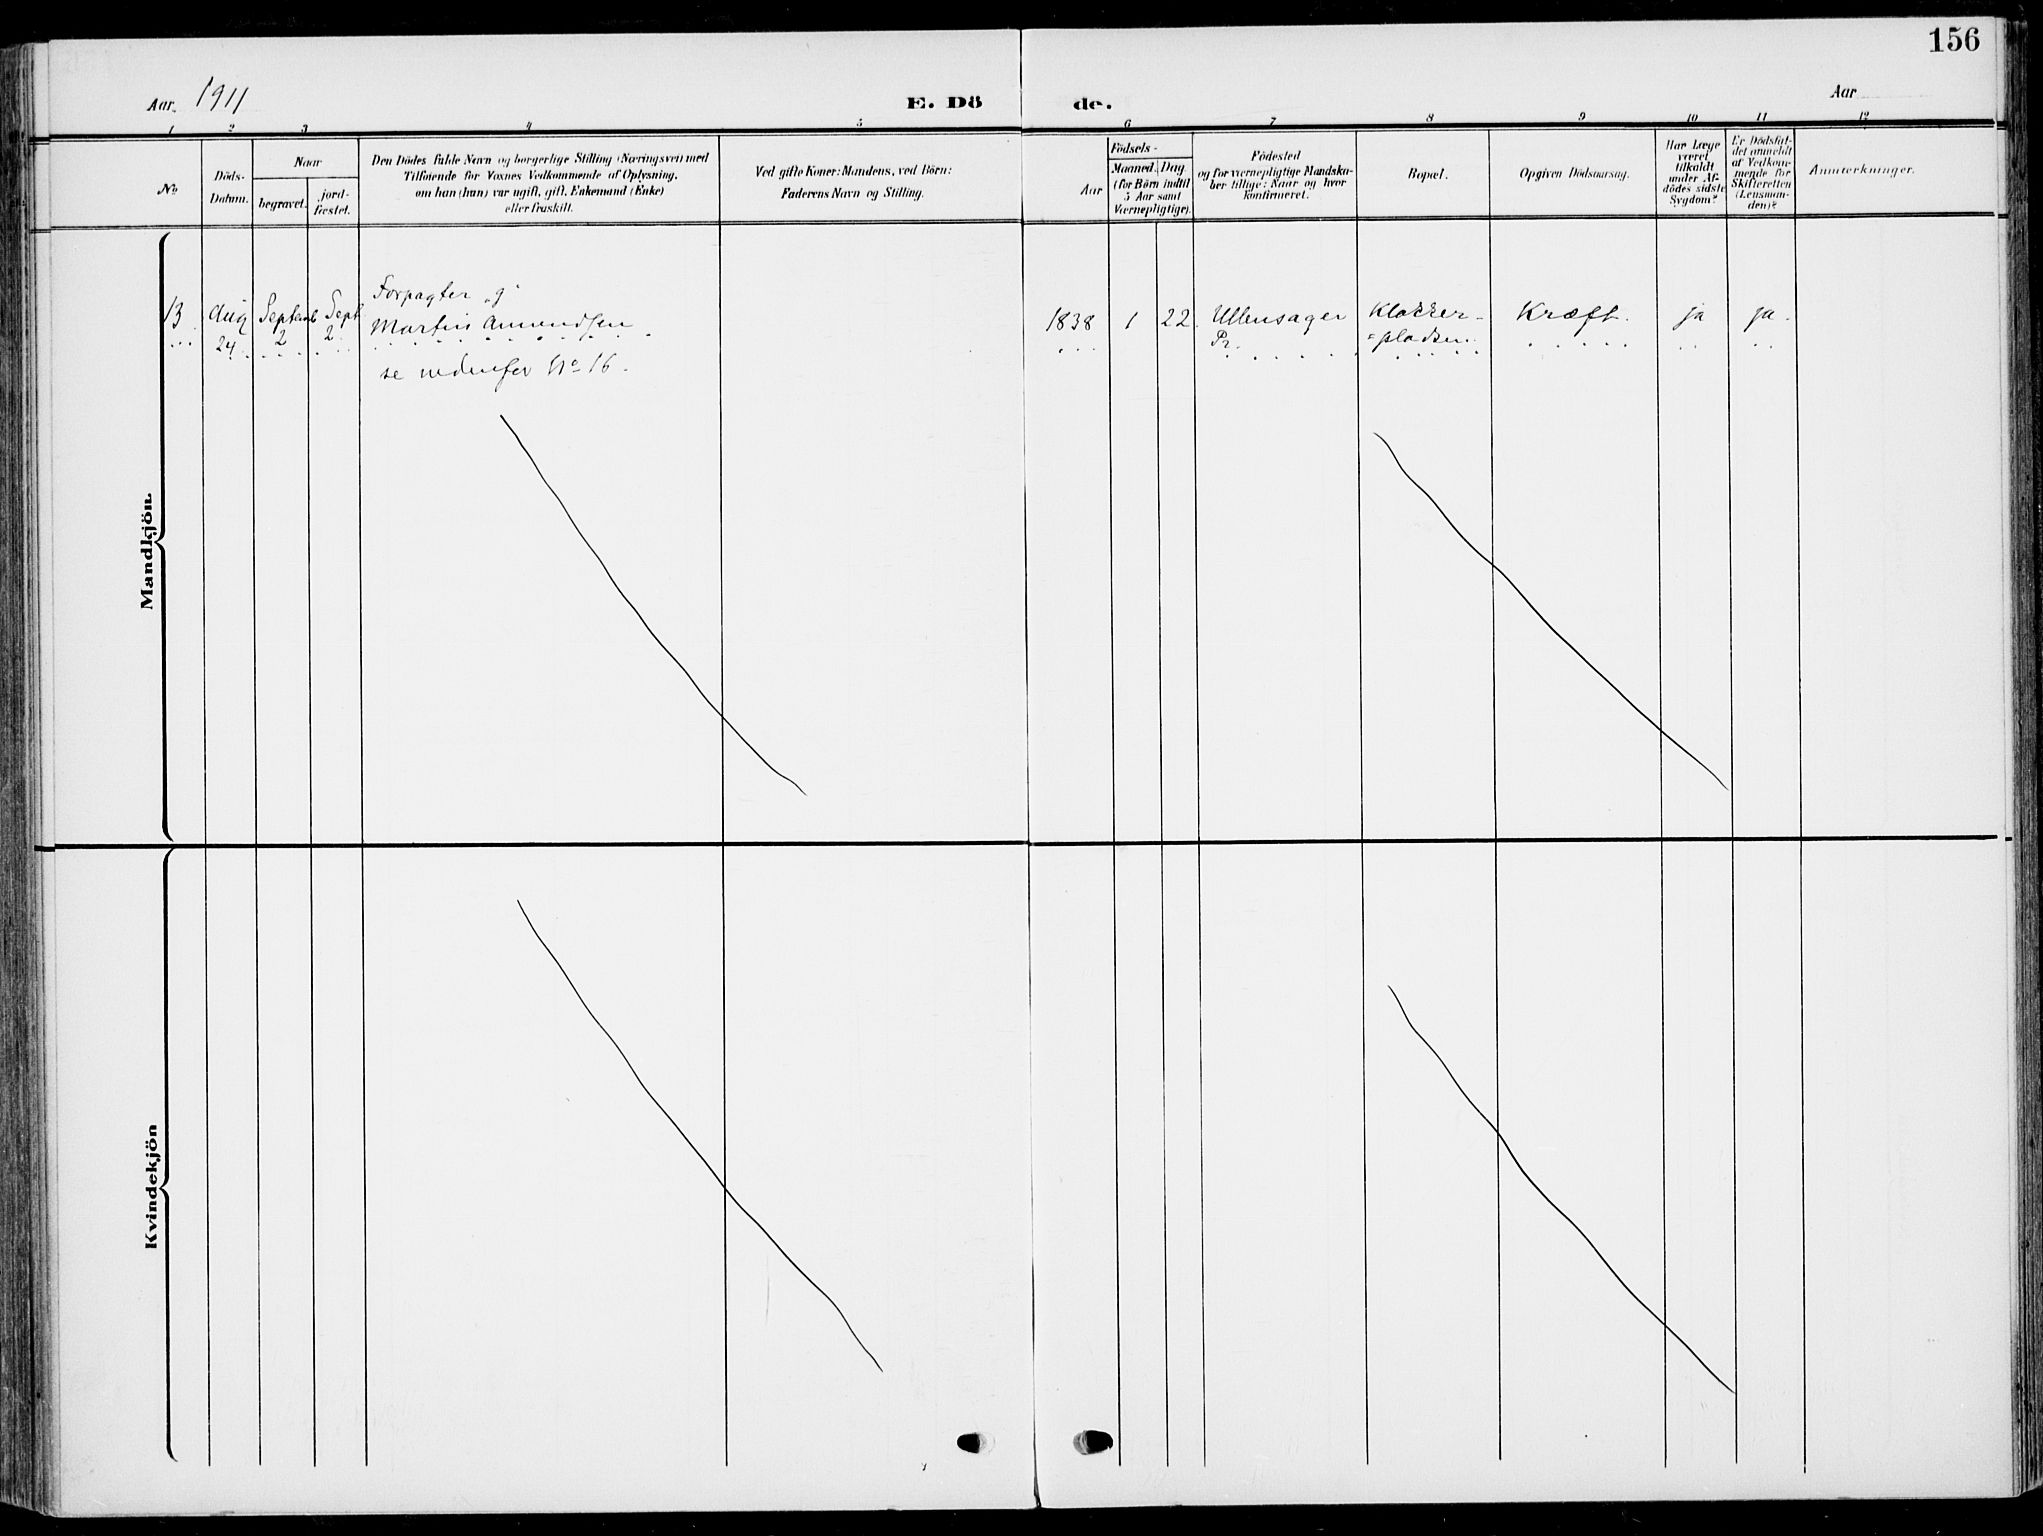 156
Aar 1911
E. Dö
de.
Aar
1 2 3 4 5 6 7 8 9 10 11 12
No
Döds-
Datum.
Naar
begravet.
jord-
fæstet.
Den Dödes fulde Navn og borgerlige Stilling (Næringsvei) med
Tilföiende for Voxnes Vedkommende af Oplysning,
om han (hun) var ugift, gift, Enkemand (Enke)
eller fraskilt.
Ved gifte Koner: Mandens, ved Börn:
Faderens Navn og Stilling.
Aar
Födsels-
Maaned. Dag.
(for Börn indtil
5 Aar samt
Værnepligtige).
Födested
og for værnepligtige Mandska-
ber tillige: Naar og hvor
konfirmeret.
Bopæl.
Opgiven Dödsaarsag.
Har Læge
været
tilkaldt
under Af-
dödes sidste
Sygdom?
Er Dödsfal-
det anmeldt
af Vedkom-
mende for
Skifteretten
(Lensman-
den)?
Anmærkninger.
Mandkjön.
13
Aug
24
Septemb
2
Sept
2
Forpagter "g"
Martin Amundsen
se nedenfor No 16.
1838
1
22
Ullensager
Pr.
Klokker-
=pladsen.
Kræft.
ja
ja.
Kvindekjön